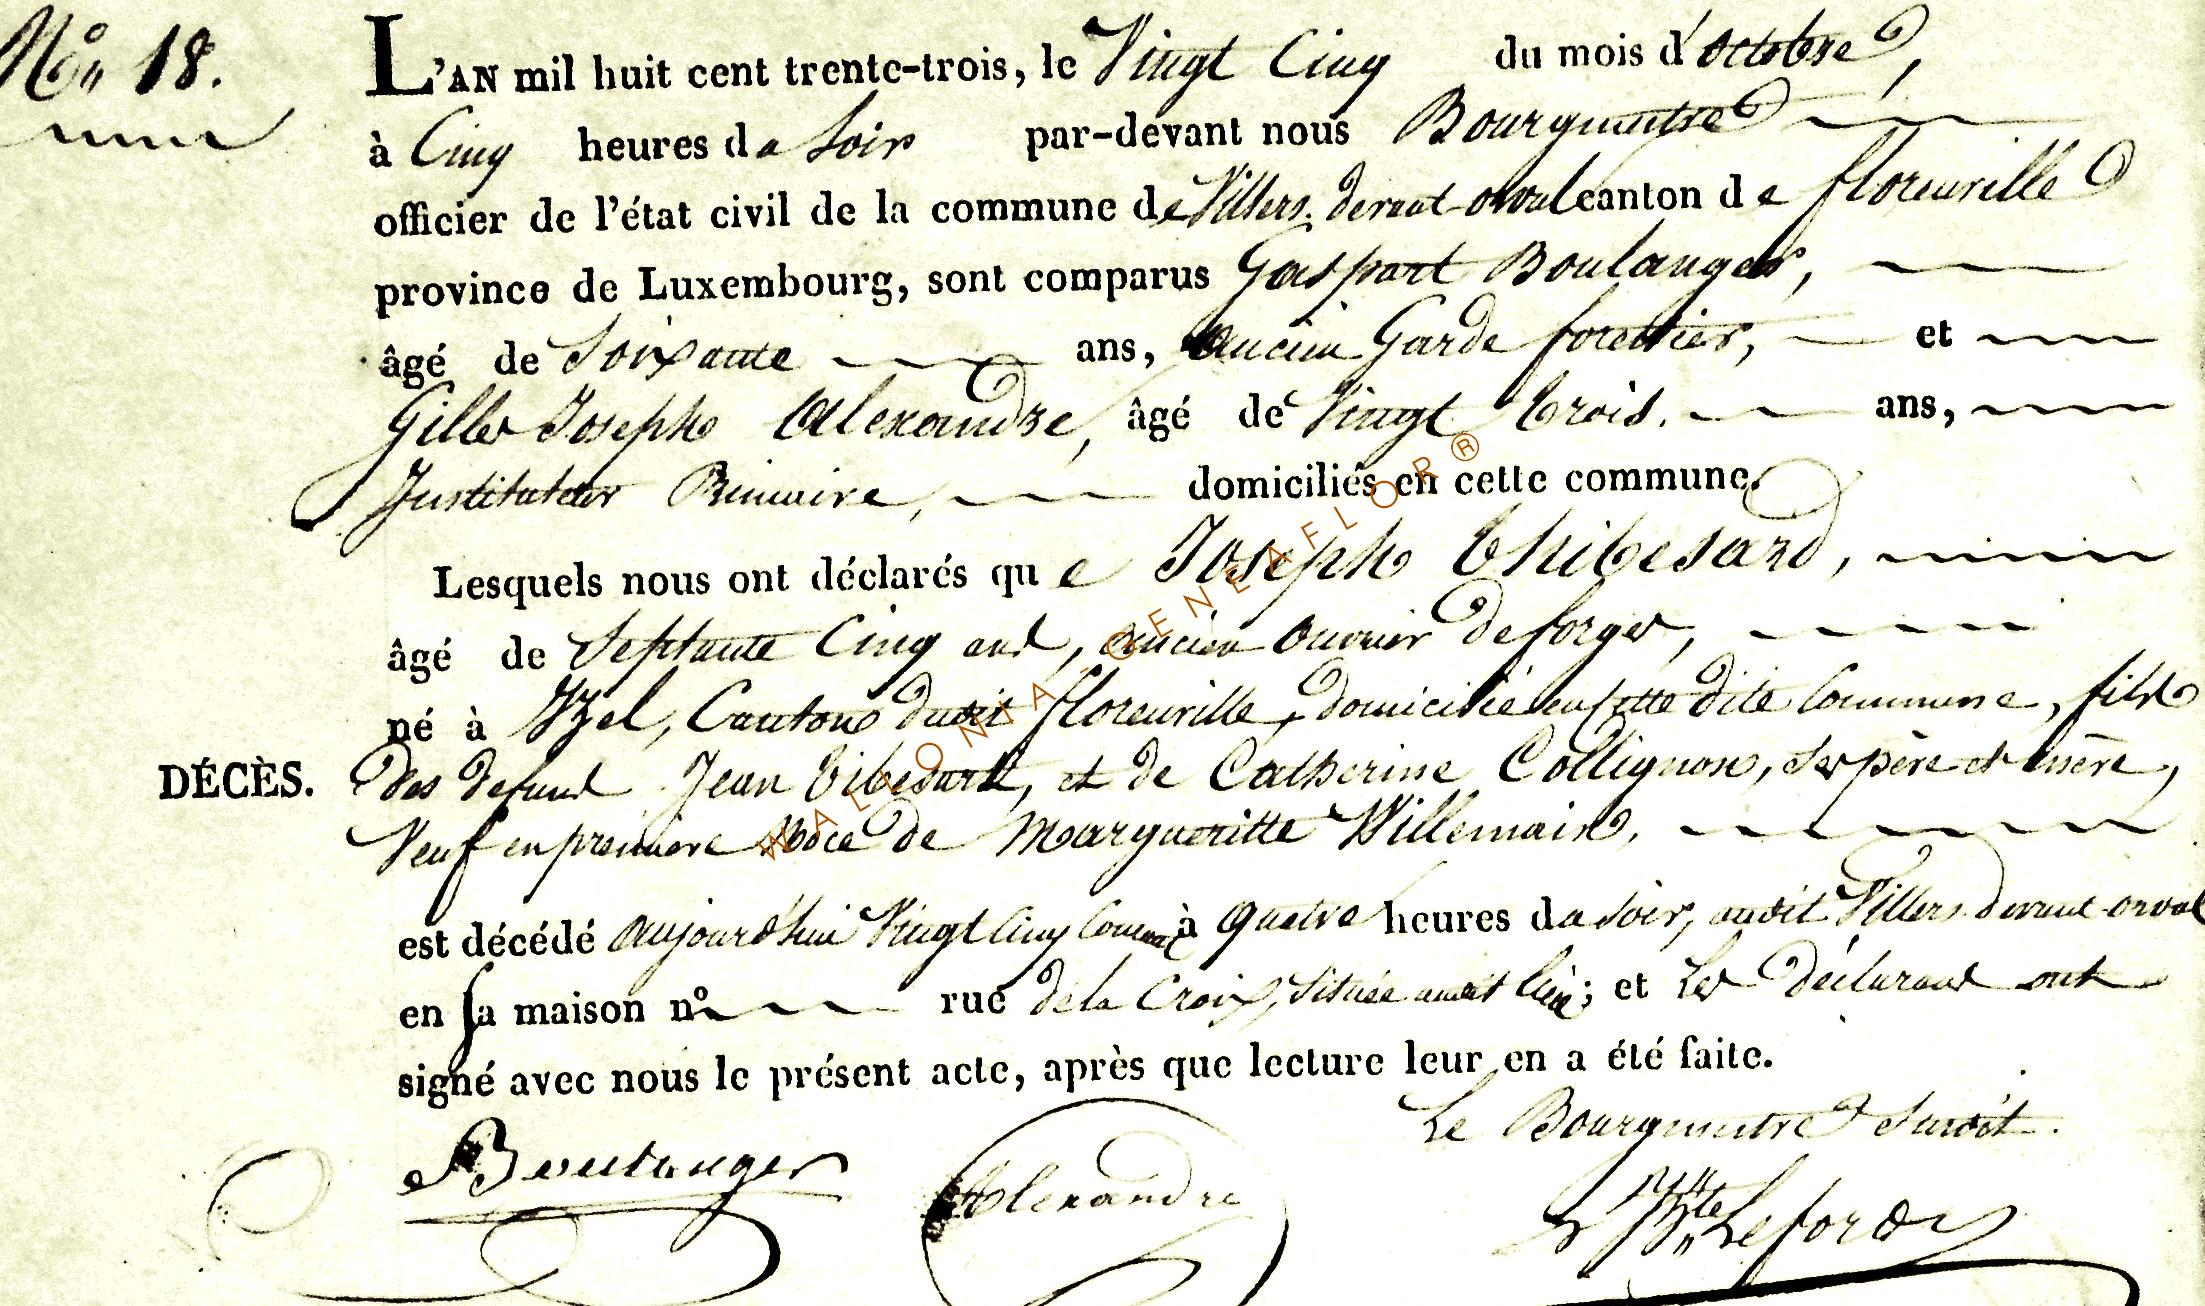 N° 18.
L'AN mil huit cent trente-trois, le Vingt Cinq du mois d'octobre,
à Cinq heures du soir par-devant nous Bourgmestre
officier de l'état civil de la commune de Villers-devant-orval canton de florenville
province de Luxembourg, sont comparus Gaspart Boulanger,
âgé de Soixante ans, ancien Garde forestier, et
Gilles Joseph Alexandre, âgé de Vingt trois. ans,
Instituteur Primaire, domiciliés en cette commune.
Lesquels nous ont déclarés que Joseph thibesard,
âgé de Septante Cinq ans, ancien ouvrier de forges,
né à Izel, Canton dudit florenville, domicilié en cette dite Commune, fils
DÉCÈS.
des defunt Jean tibesart, et de Catherine Collignon, ses père et mère,
Veuf en première Noce de Margueritte Willemain.
est décédé aujourd'hui Vingt Cinq à quatre heures du soir, audit Villers devant-orval
en sa maison n° rue de la Croix, située audit lieu; et Les déclarant ont
signé avec nous le présent acte, après que lecture leur en a été faite.
Le Bourgmestre Susdit.
Boulanger
Alexandre
Leford
WALLONNIA GENEAFLOR ®